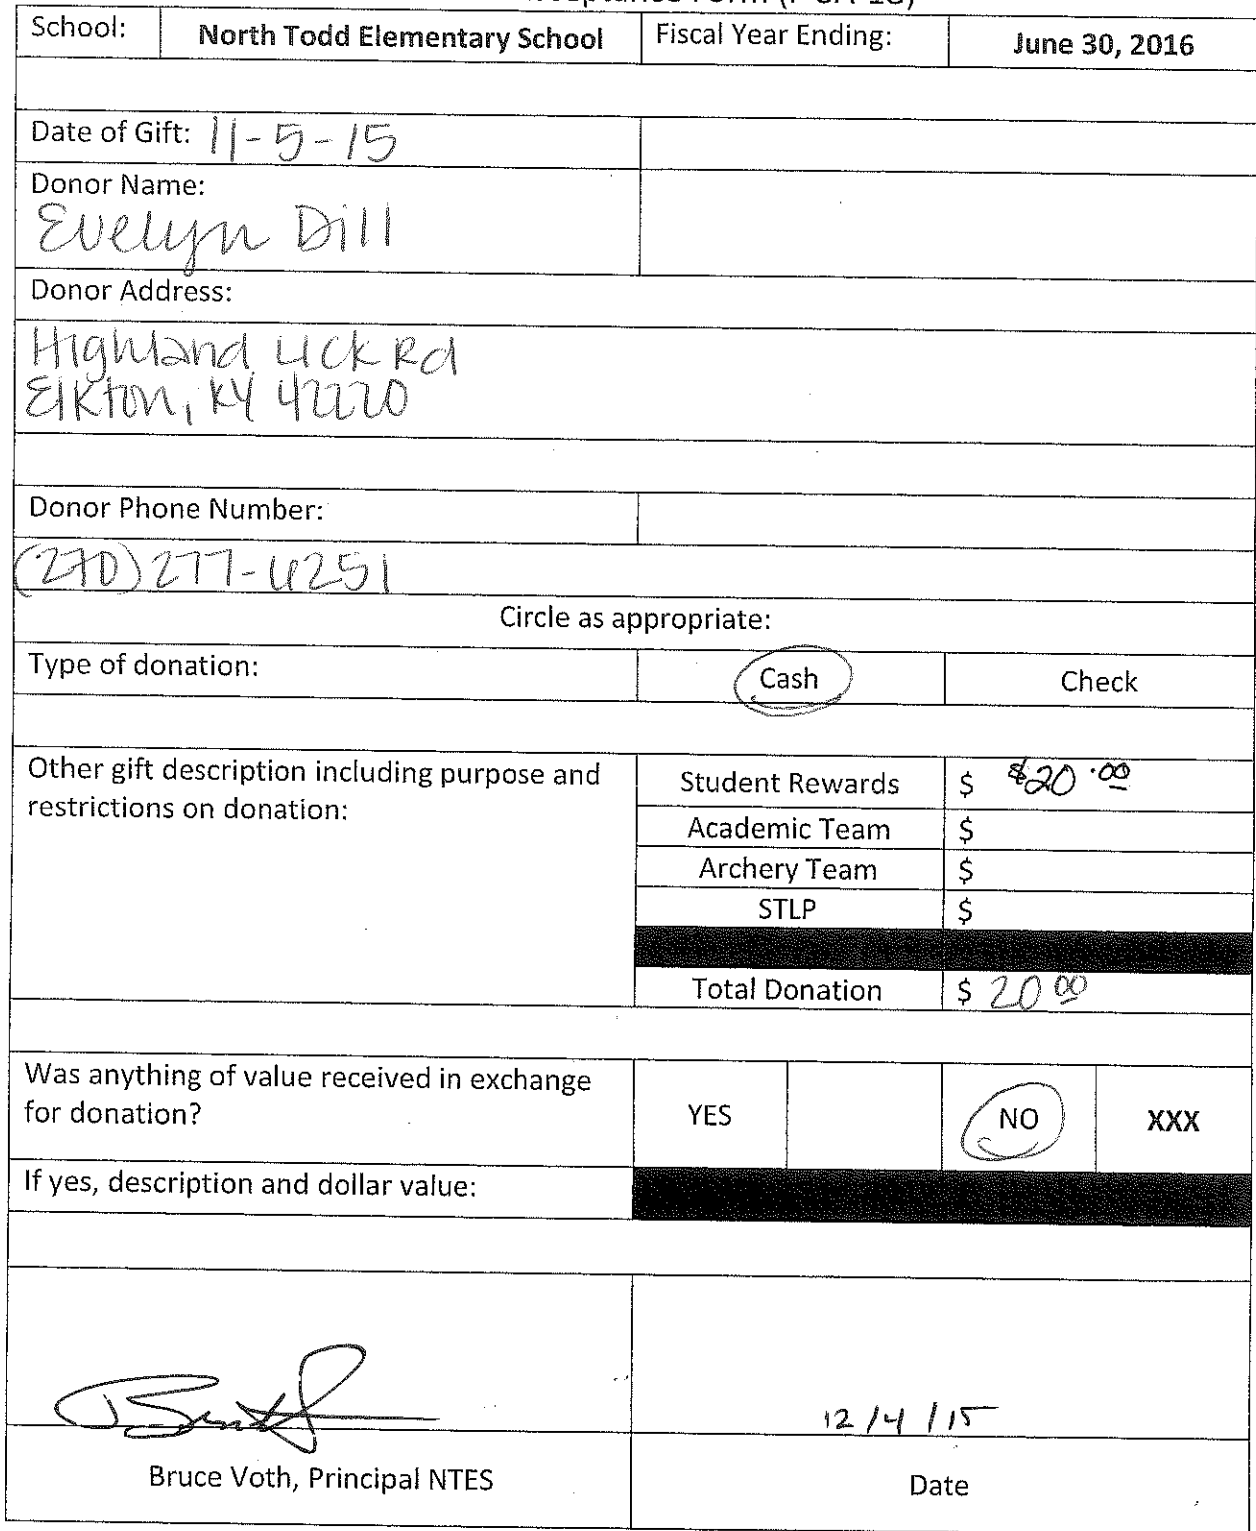 School: North Todd Elementary School Fiscal Year Ending: June 30, 2016
Date of Gift: 11-5-15
Donor Name:
Evelyn Dill
Donor Address:
Highland Lick Rd
Elkton, KY 42220
Donor Phone Number:
(270) 277-6251
Circle as appropriate:
Type of donation: Cash Check
Other gift description including purpose and
restrictions on donation:
Student Rewards $ $20.00
Academic Team $
Archery Team $
STLP $
Total Donation $ 20 00
Was anything of value received in exchange
for donation?
YES NO XXX
If yes, description and dollar value:
12/4/15
Bruce Voth, Principal NTES Date